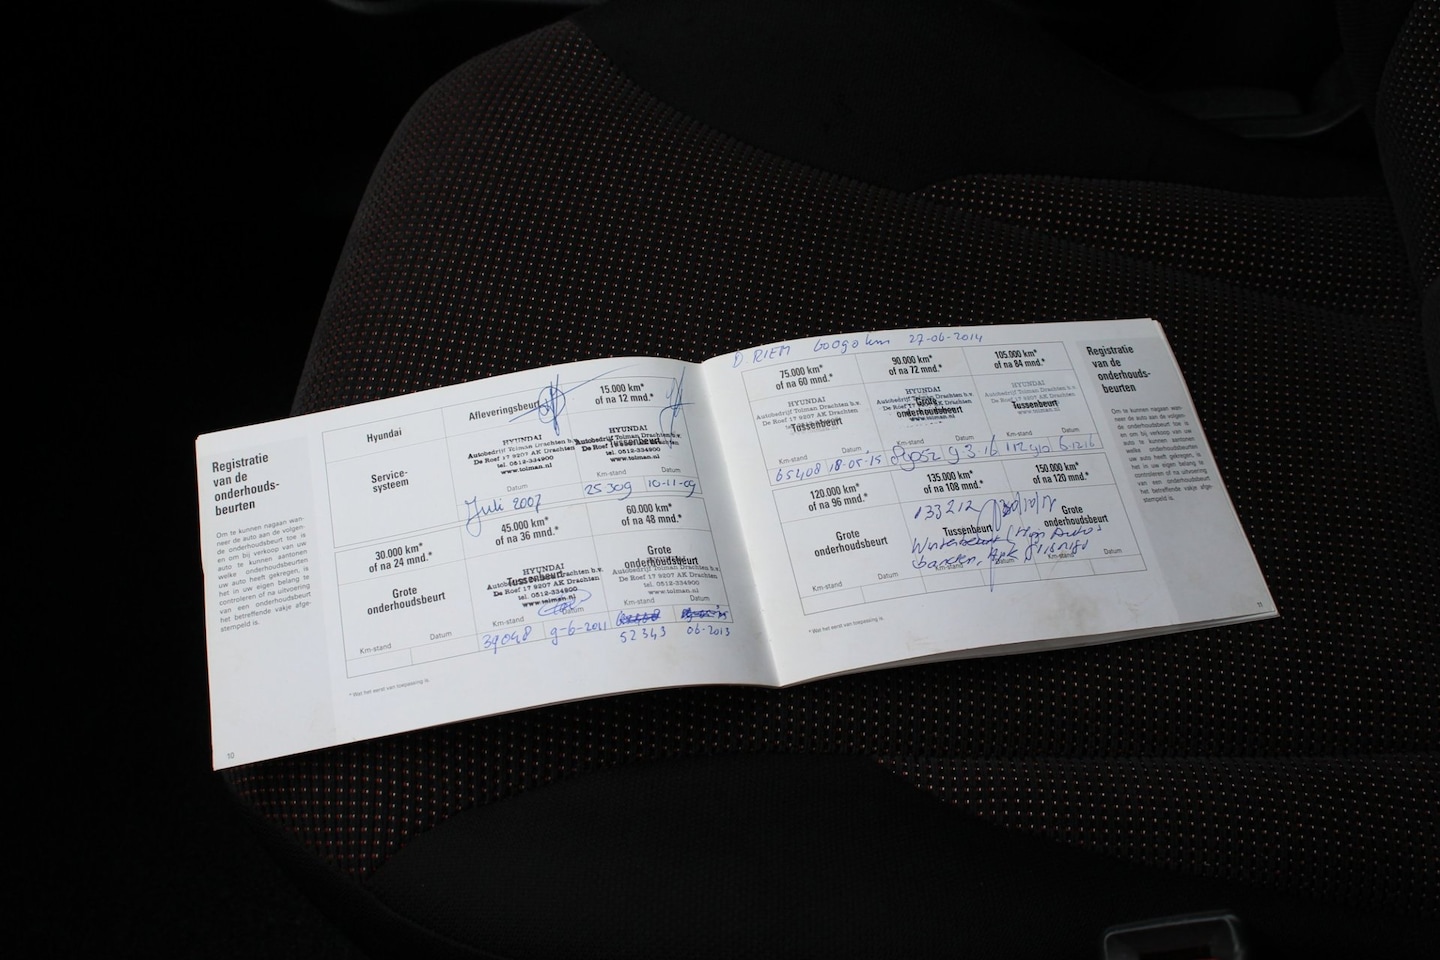 Registratie
van de
onderhouds-
beurten
Om te kunnen nagaan wan-
neer de auto aan de volgen-
de onderhoudsbeurt toe is
en om bij verkoop van uw
auto te kunnen aantonen
welke onderhoudsbeurten
uw auto heeft gekregen, is
het in uw eigen belang te
controleren of na uitvoering
van een onderhoudsbeurt
het betreffende vakje afge-
stempeld is.
10
Hyundai
Service-
systeem
Afleveringsbeurt
HYUNDAI
Autobedrijf Tolman Drachten b.v.
De Roef 17 9207 AK Drachten
tel. 0512-334900
www.tolman.nl
Datum
Juli 2007
15.000 km*
of na 12 mnd.*
Tussenbeurt
HYUNDAI
Autobedrijf Tolman Drachten b.v.
De Roef 17 9207 AK Drachten
tel. 0512-334900
www.tolman.nl
Km-stand Datum
25309 10-11-09
30.000 km*
of na 24 mnd.*
Grote
onderhoudsbeurt
Km-stand Datum
45.000 km*
of na 36 mnd.*
HYUNDAI
Autobedrijf Tolman Drachten b.v.
Tussenbeurt
De Roef 17 9207 AK Drachten
tel. 0512-334900
www.tolman.nl
Km-stand Datum
39048 9-6-2011
60.000 km*
of na 48 mnd.*
Grote
onderhoudsbeurt
HYUNDAI
Autobedrijf Tolman Drachten b.v.
De Roef 17 9207 AK Drachten
tel. 0512-334900
www.tolman.nl
Km-stand Datum
52343 06-2013
* Wat het eerst van toepassing is.
D. RIEM 60090 km 27-06-2014
75.000 km*
of na 60 mnd.*
HYUNDAI
Autobedrijf Tolman Drachten b.v.
De Roef 17 9207 AK Drachten
Tussenbeurt
Km-stand Datum
65408 18-05-'15
90.000 km*
of na 72 mnd.*
HYUNDAI
Autobedrijf Tolman Drachten b.v.
De Roef 17 9207 AK Drachten
Grote
onderhoudsbeurt
www.tolman.nl
Km-stand Datum
9.3.16
105.000 km*
of na 84 mnd.*
HYUNDAI
Autobedrijf Tolman Drachten b.v.
De Roef 17 9207 AK Drachten
Tussenbeurt
www.tolman.nl
Km-stand Datum
6.12.16
120.000 km*
of na 96 mnd.*
Grote
onderhoudsbeurt
Km-stand Datum
135.000 km*
of na 108 mnd.*
133212
Tussenbeurt
Km-stand Datum
150.000 km*
of na 120 mnd.*
Grote
onderhoudsbeurt
Km-stand Datum
banden, Apk
* Wat het eerst van toepassing is.
Registratie
van de
onderhouds-
beurten
Om te kunnen nagaan wan-
neer de auto aan de volgen-
de onderhoudsbeurt toe is
en om bij verkoop van uw
auto te kunnen aantonen
welke onderhoudsbeurten
uw auto heeft gekregen, is
het in uw eigen belang te
controleren of na uitvoering
van een onderhoudsbeurt
het betreffende vakje afge-
stempeld is.
11